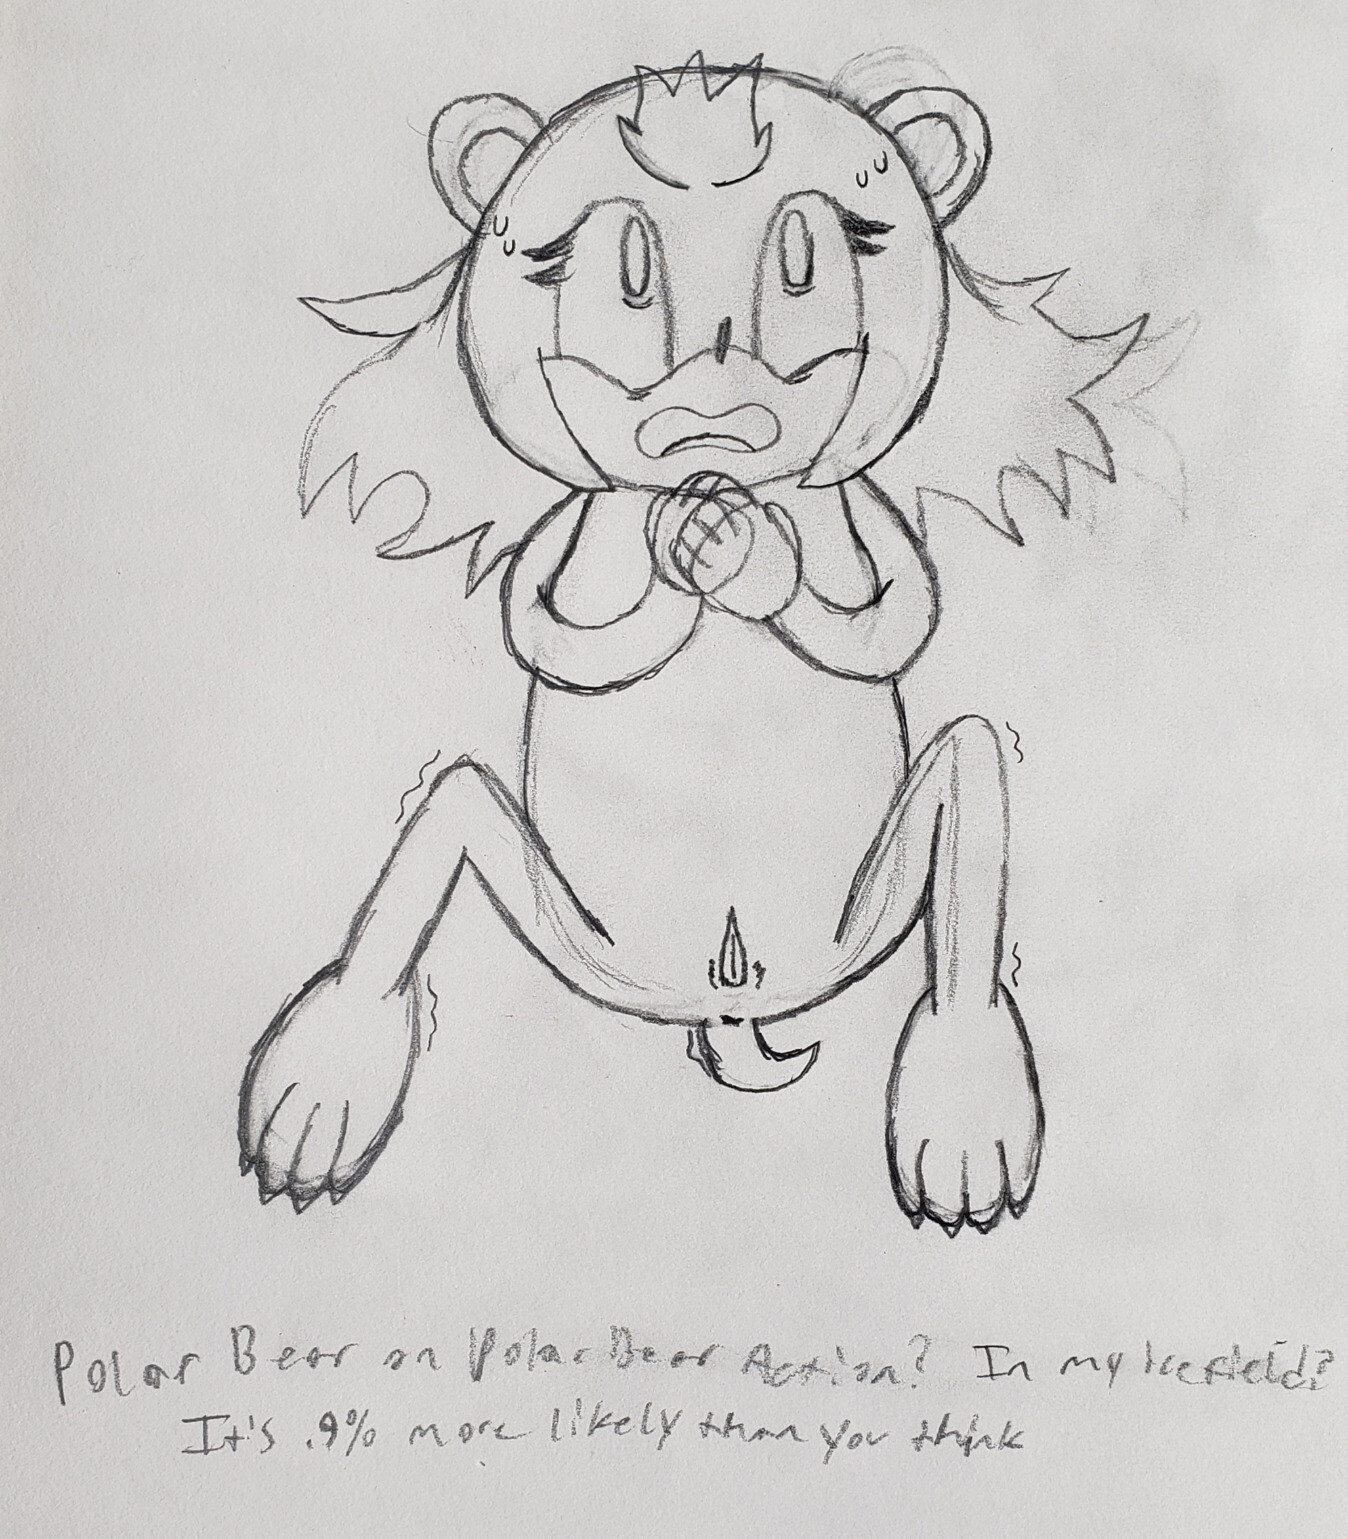 Polar Bear on Polar Bear Action? In my icefield?
It's .9% more likely than you think